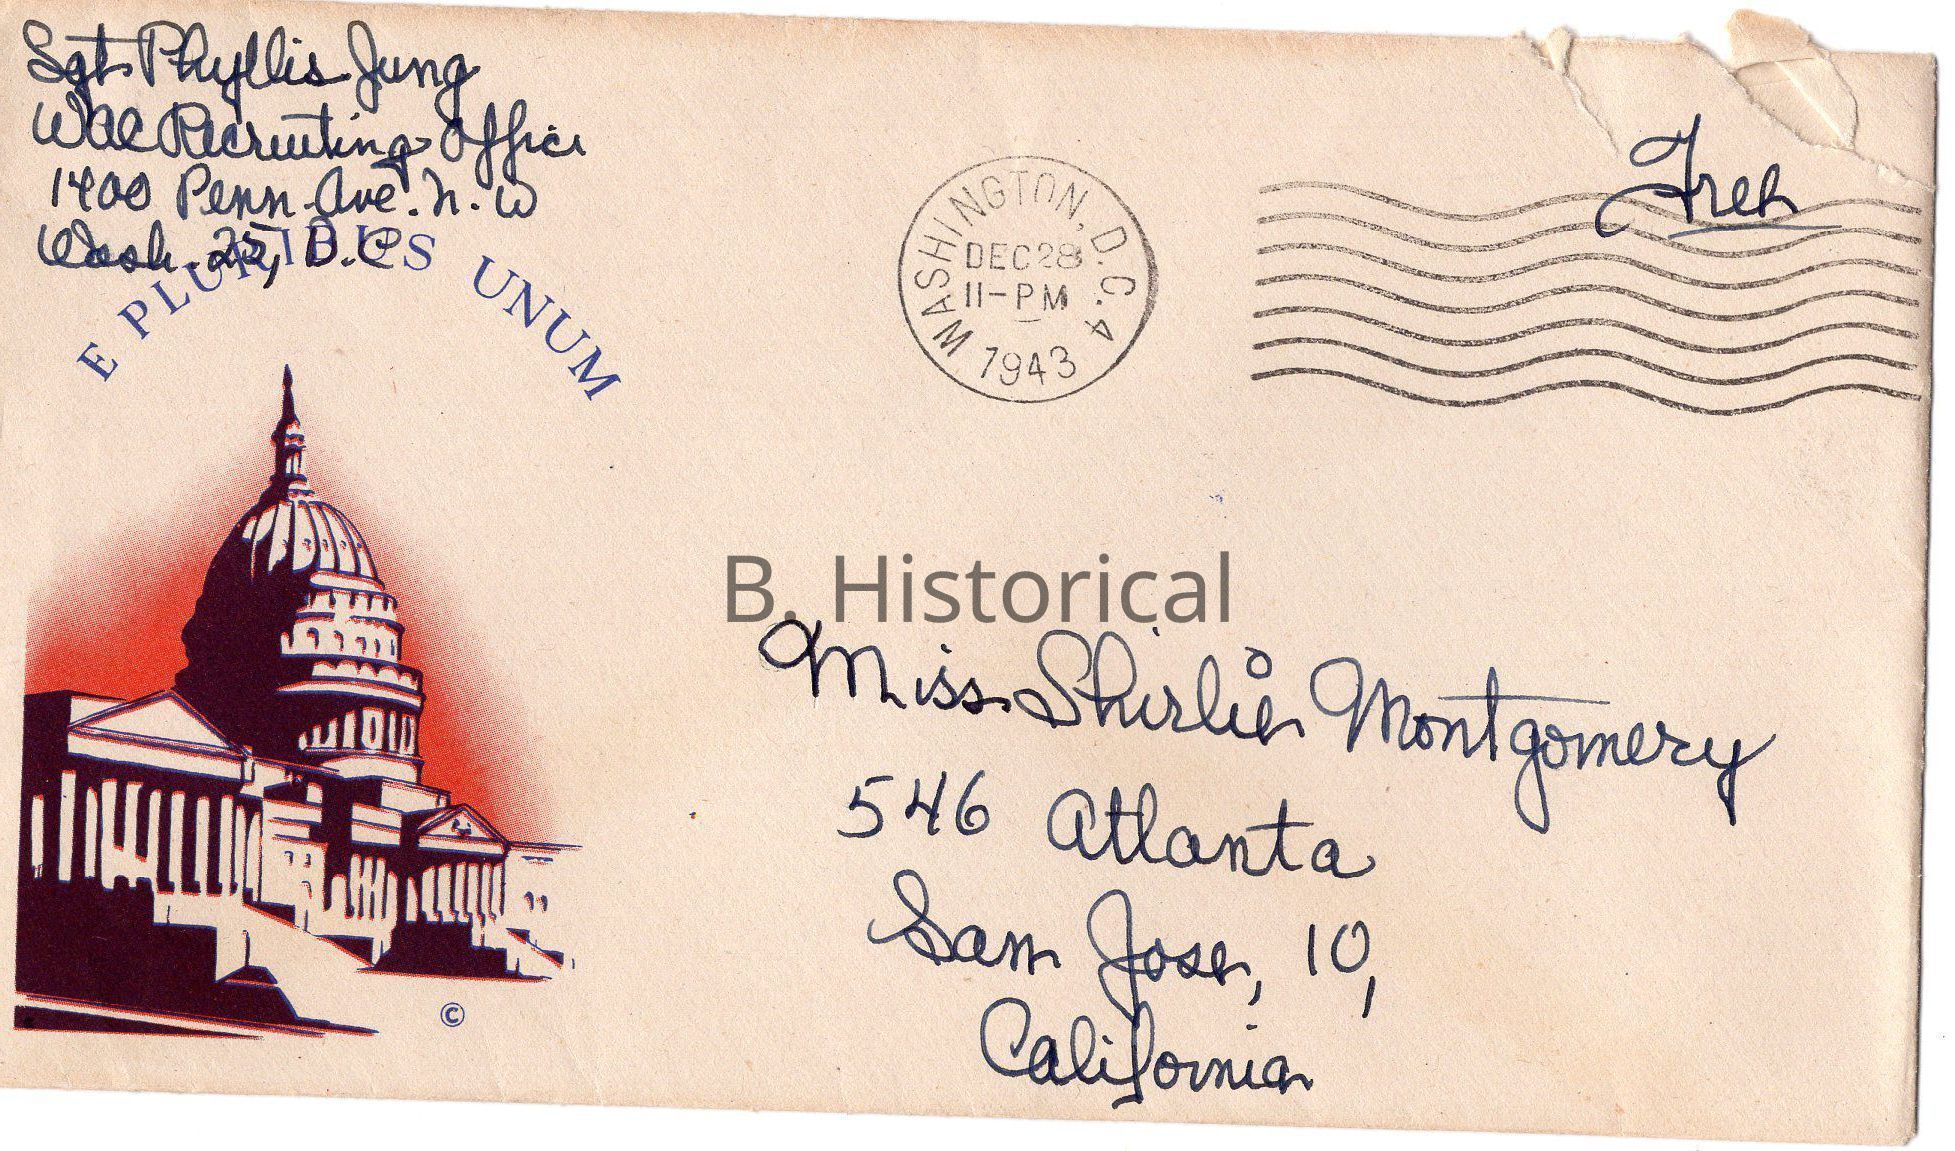 Sgt Phyllis Jung
Wac Recruiting Office
1400 Penn. Ave. N.W
Wash. 25, D.C
E PLURIBUS UNUM
WASHINGTON, D.C. 4
DEC 28
11-PM
1943
Free
B. Historical
Miss Shirlie Montgomery
546 Atlanta
San Jose, 10,
California
©